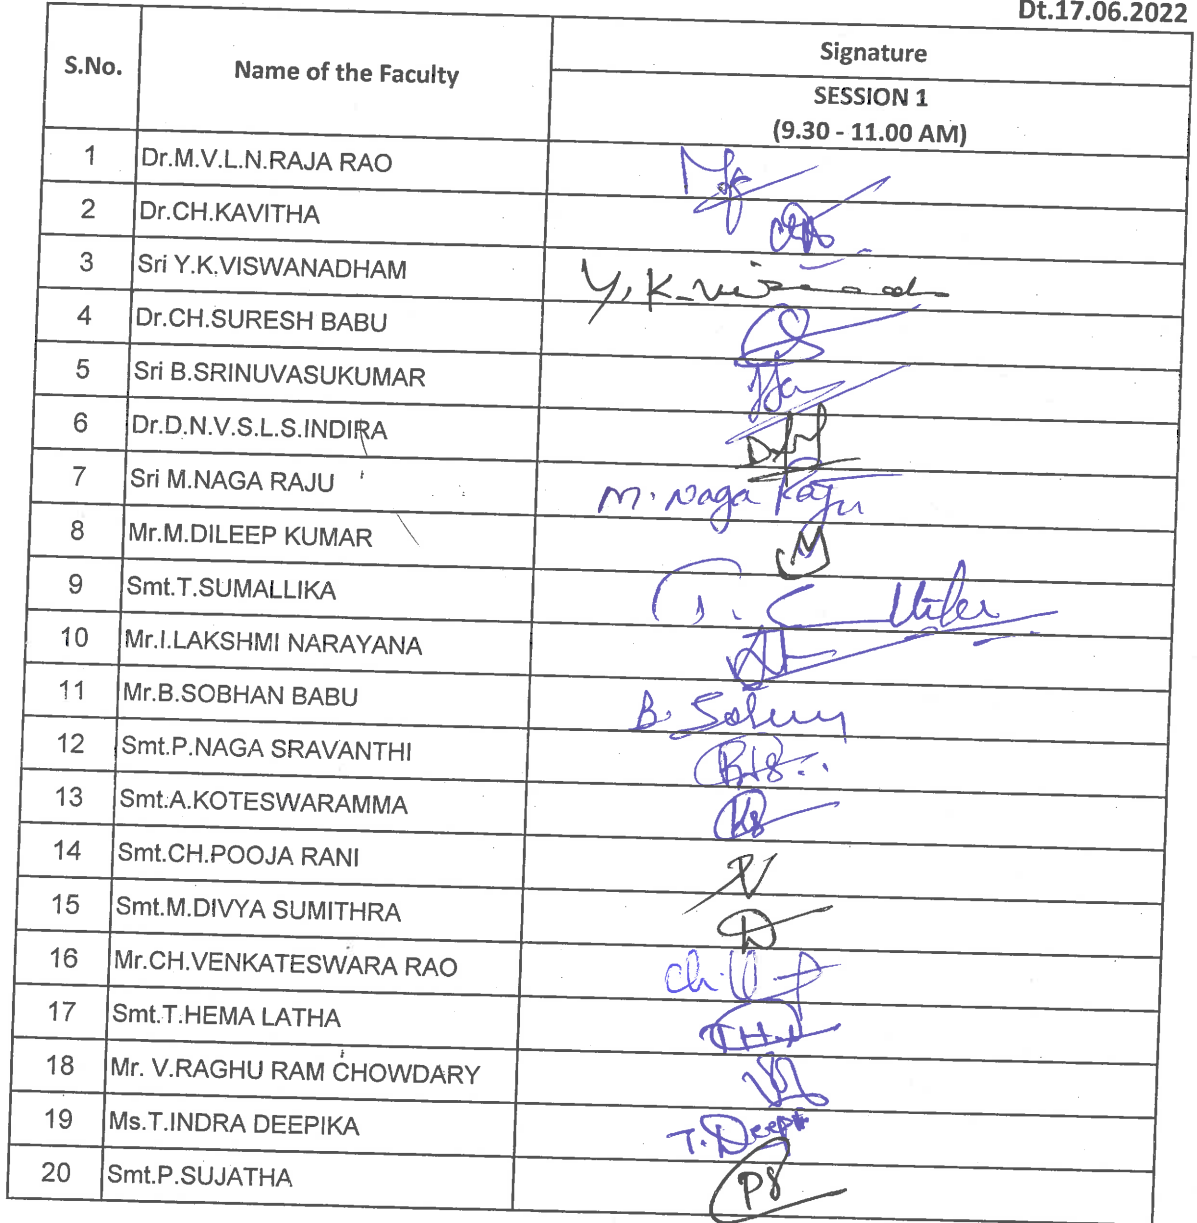 Dt.17.06.2022
S.No. Name of the Faculty Signature
SESSION 1
(9.30 - 11.00 AM)
1 Dr.M.V.L.N.RAJA RAO
2 Dr.CH.KAVITHA
3 Sri Y.K.VISWANADHAM
4 Dr.CH.SURESH BABU
5 Sri B.SRINUVASUKUMAR
6 Dr.D.N.V.S.L.S.INDIRA
7 Sri M.NAGA RAJU M. Naga Raju
8 Mr.M.DILEEP KUMAR
9 Smt.T.SUMALLIKA
10 Mr.I.LAKSHMI NARAYANA
11 Mr.B.SOBHAN BABU
12 Smt.P.NAGA SRAVANTHI
13 Smt.A.KOTESWARAMMA
14 Smt.CH.POOJA RANI
15 Smt.M.DIVYA SUMITHRA
16 Mr.CH.VENKATESWARA RAO
17 Smt.T.HEMA LATHA
18 Mr. V.RAGHU RAM CHOWDARY
19 Ms.T.INDRA DEEPIKA
20 Smt.P.SUJATHA